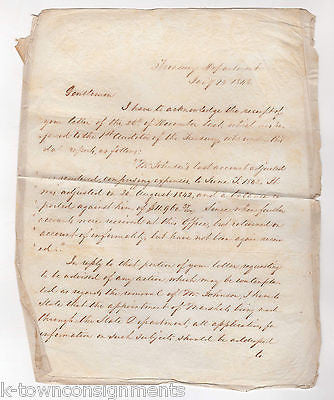 Treasury Department
Jany 12 1843
Gentlemen
I have to acknowledge the receipt of
your letter of the 28th of December last, which was re-
ferred to the 1st Auditor of the Treasury who under this
date reports as follows:
"Mr Johnson's last account adjusted
rendered comprising expenses to June
was adjusted in August 1842, and a balance re-
ported against him of Since, when further
accounts were received at this Office, but returned on
account of informality, but have not been again recei-
ved."
In reply to that portion of your letter requesting
to be advised of any action which may be contempla-
ted as regards the removal of Mr Johnson, I have to
State that the appointment of Marshals being made
through the State Department, all applications for
information on such subject should be addressed
to
k-townconsignments